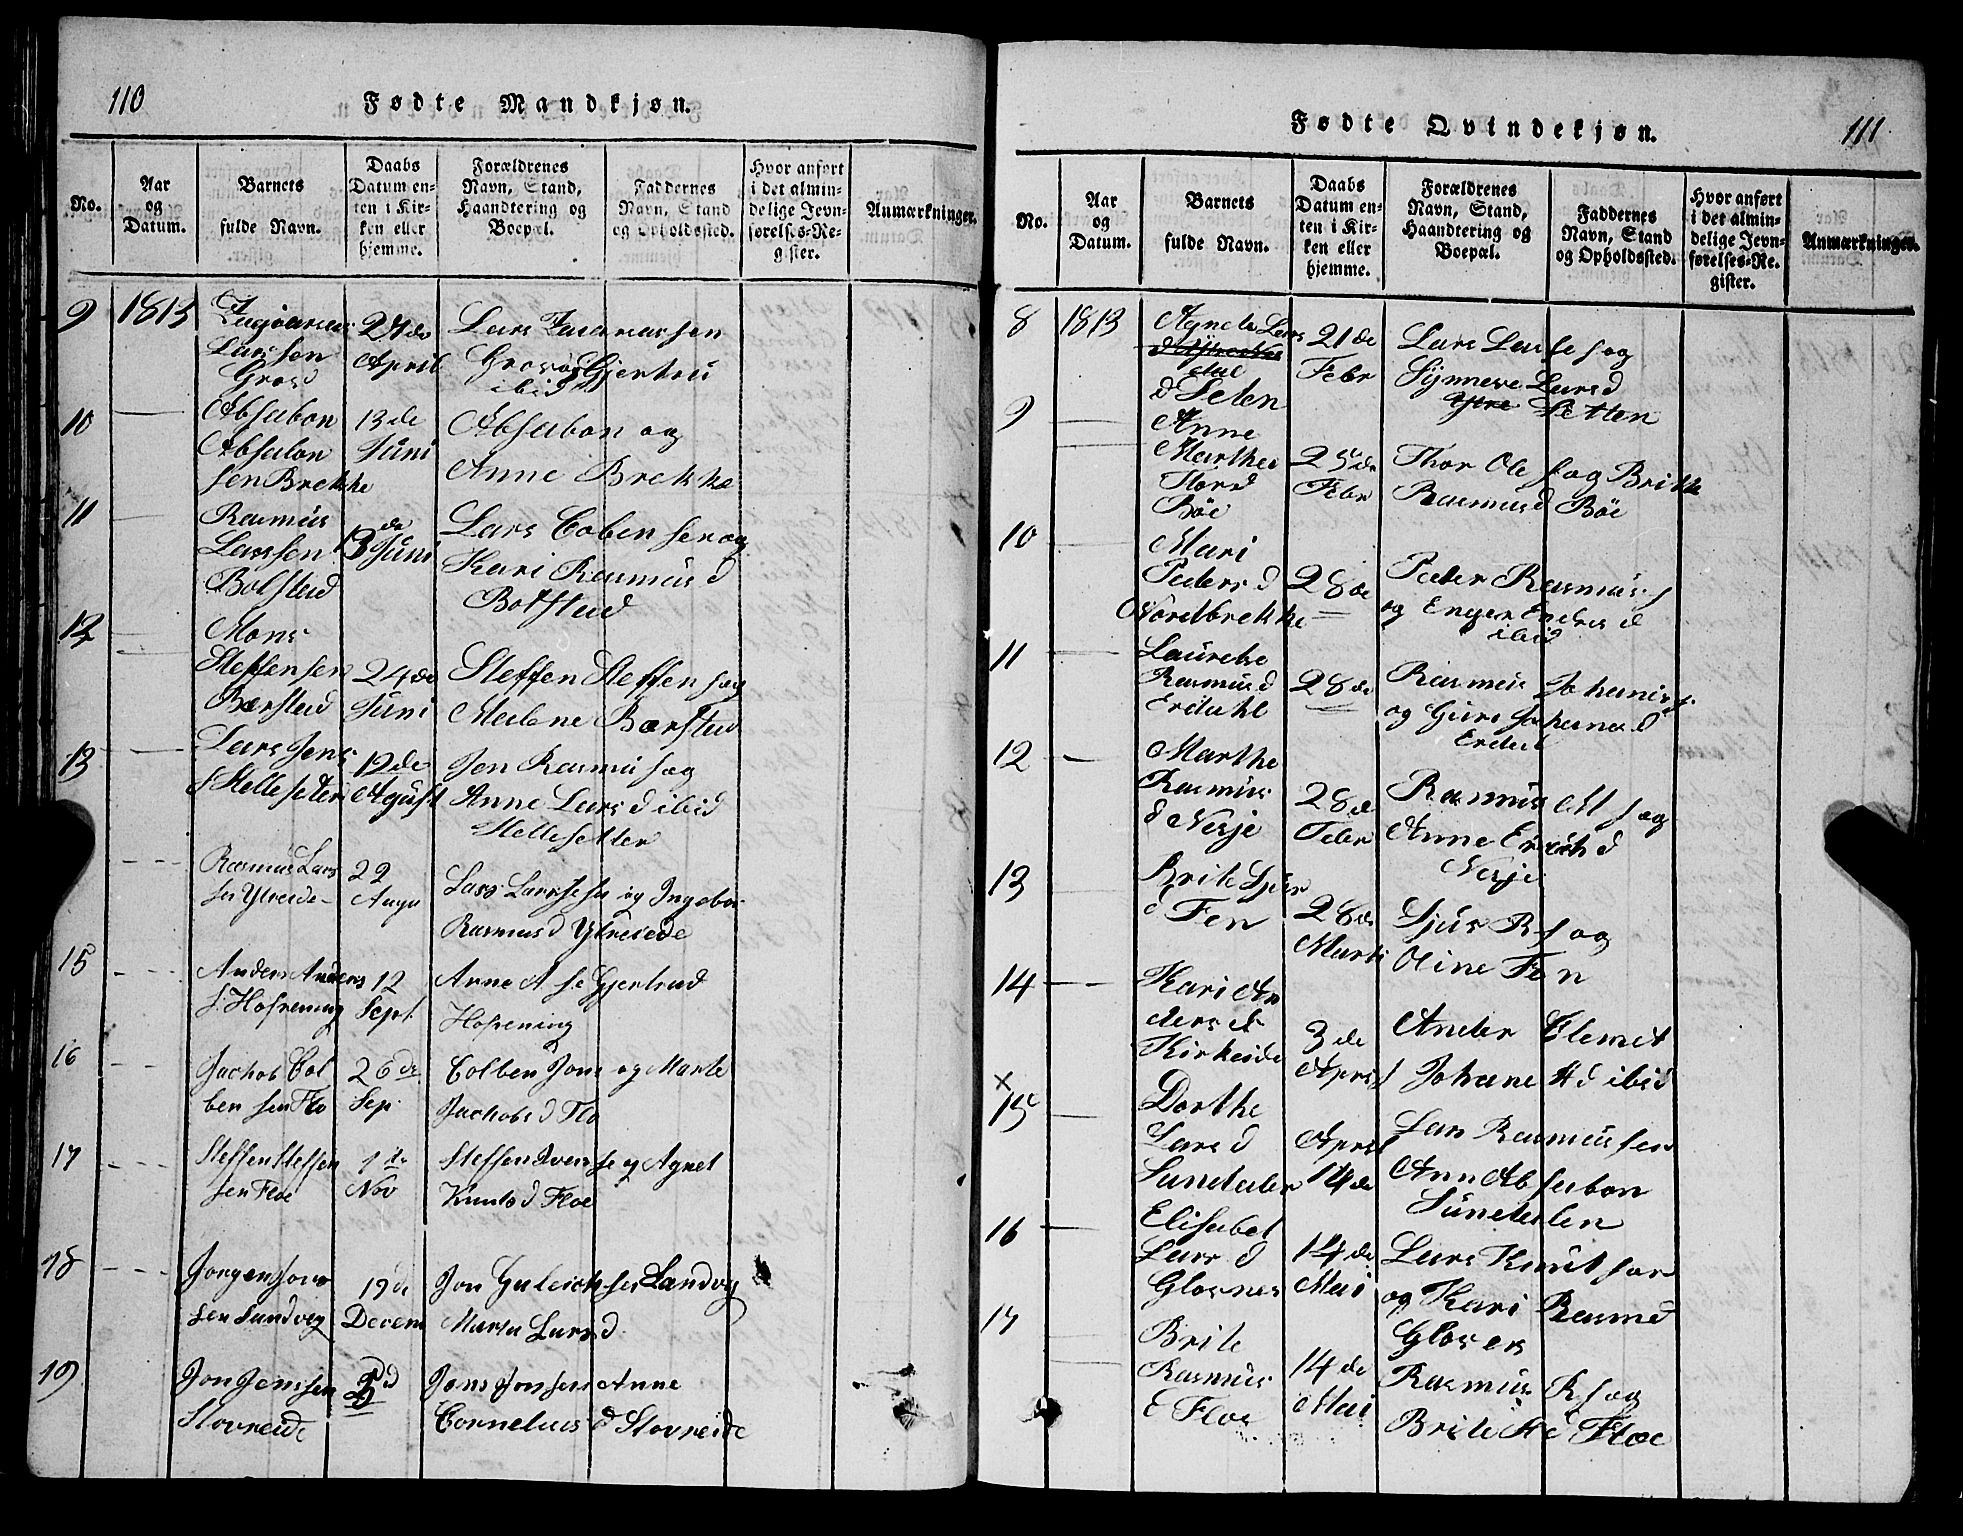 110
Fødte Mandkjøn.
No.
Aar
og
Datum.
Barnets
fulde Navn.
Daabs
Datum en-
ten i Kir-
ken eller
hjemme.
Forældrenes
Navn, Stand,
Haandtering og
Boepæl.
Faddernes
Navn, Stand
og Opholdssted.
Hvor anført
i det almin-
delige Jevn-
førelses-Re-
gister.
Anmærkninger.
9
1813
Larsen
24de
April
ibid
10
Absabon
Absalon
sen Brekke
13de
Juni
Absabon og
Anne Brekke
11
Rasmus
Larssen
Bolstad
13de
Juni
Lars Colbensen og
Kari Rasmusd
Bolstad
12
Mons
Steffensen
Bærstad
24de
Juni
Steffen Steffens og
Malene Bærstad
13
Lars Jens
s Hellesetter
12de
Agust
Jen Rasmus og
Anne Larsd ibid
Hellesetter
Rasmus Lars
sen Ytreide
22
Augu
Lars Larsse og Ingebor
Rasmusd Ytreeide
15
Anders Anders
s. Hofrening
12
Sept.
Anne A se Gjertrud
Hofrening
16
Jachob Col
bensen Flo
26de
Sep.
Colben Jons og Marte
Jachobsd Flo
17
Steffen Steffen
sen Floe
1te
Nov
Steffen Iverse og Agnet
Knutsd Floe
18
Jorgen Jons
sen Sandvig
19de
Decem
Jon Guleichsen Sandvig
Marta Larsd
19
Jon Jenssen
Stovreide
Jens Jonsen Anne
Cornelius d Stovreide
111
Fødte Qvindekjøn.
No.
Aar
og
Datum.
Barnets
fulde Navn.
Daabs
Datum en-
ten i Kir-
ken eller
hjemme.
Forældrenes
Navn, Stand,
Haandtering og
Boepæl.
Faddernes
Navn, Stand
og Opholdssted.
Hvor anført
i det almin-
delige Jevn-
førelses-Re-
gister.
Anmærkninger.
8
1813
Agnete Lars
d Seten
21de
Febr
Lars Larse og
Synneve Larsd
Ytre Setten
9
Anne
Marthea
Thord
Böe
25de
Febr
Thor Ole s og Britte
Rasmusd Böe
10
Mari
Peders d
Nordbrekke
28de
Peder Rasmus s
og Enger Endresd
ibid
11
Laurche
Rasmusd
Erdahl
28de
Rasmus Johanis s
og Guri Johanesd
Erdal
12
Marthe
Rasmus
d Nesje
28de
Febr
Rasmus M s og
Anne Erichd
Nesje
13
Brite Sjur
d Fen
28de
Marti
Sjur R s og
Oline Fen
14
Kari An
dersd
Kirkeide
3de
April
Ander Clemet
Johane A d ibid
x
15
Dorthe
Larsd
Sundalen
April
14de
Lars Rasmussen
Ann Absabon
Sunndalen
16
Elisabet
Larsd
Glosnes
14de
Mai
Lars Knutsøn
og Kari Rasmd
Glosnes
17
Brite
Rasmus
d Floe
14de
Mai
Rasmus R s og
Brite A d Floe